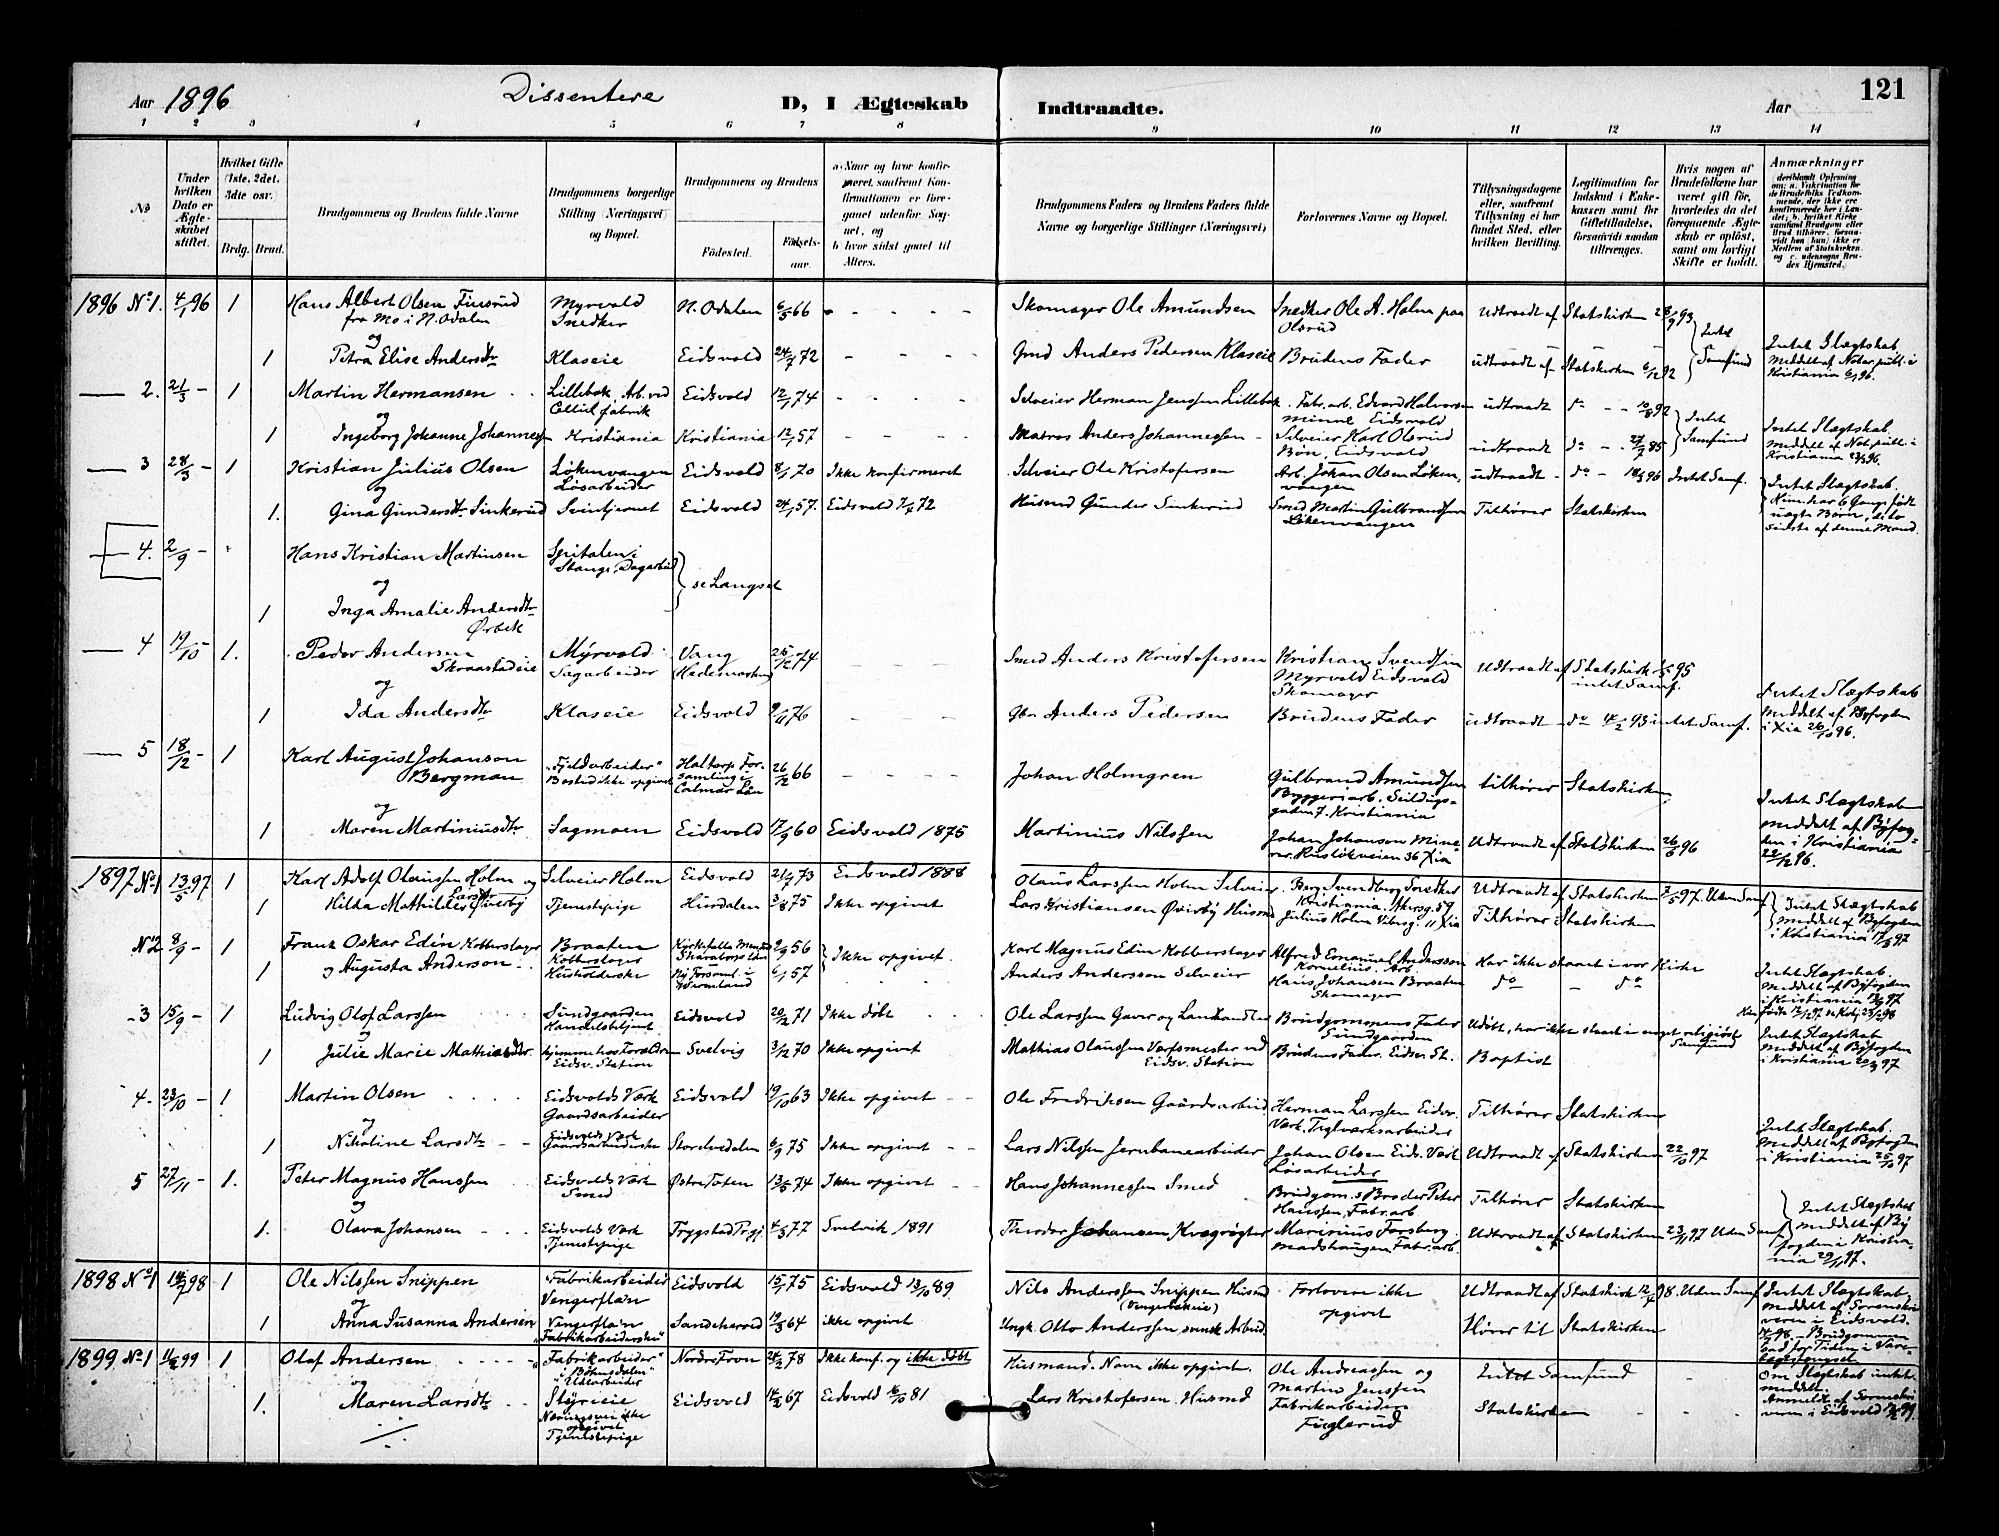 121
Aar 1896
Dissentere
D, I Ægteskab
Indtraadte.
Aar
1 2 3 4 5 6 7 8 9 10 11 12 13 14
No
Under hvilken Dato er Ægteskabet stiftet.
Hvilket Gifte (1ste, 2det, 3die osv.
Brdg. Brud.
Brudgommens og Brudens fulde Navne
Brudgommens borgerlige Stilling (Næringsvei) og Bopæl.
Brudgommens og Brudens
Fødested.
Fødselsaar.
a. Naar og hvor konfirmeret, saafremt Konfirmationen er foregaaet udenfor Sognet, og
b. hvor sidst gaaet til Alters.
Brudgommens Faders og Brudens Faders fulde Navne og borgerlige Stillinger (Næringsvei)
Forlovernes Navne og Bopæl.
Tillysningsdagene eller, saafremt Tillysning ei har fundet Sted, efter hvilken Bevilling.
Legitimation for Indskud i Enkekassen samt for Giftetilladelse, forsaavidt saadan tiltrænges.
Hvis nogen af Brudefolkene har været gift før, hvorledes da det foregaaende Ægteskab er opløst, samt om lovligt Skifte er holdt.
Anmærkninger
1896 No 1. 4/1 96 1 Hans Albert Olsen Finsrud fra Mo i N. Odalen Myrvold Snedker N. Odalen 6/5 66 Skomager Ole Amundsen Snedker Ole A. Holm paa Olsrud Udtraadt af Statskirken 28/9 93
og
1 Petra Elise Andersdtr Klaseie Eidsvold 24/7 72 Gmd Anders Pedersen Klaseie Brudens Fader udtraadt af Statskirken 6/12 92 Intet Samfund Intet Slægtskab meddelt af Notar. publ. i Kristiania 6/1 96.
2. 21/3 1 Martin Hermansen Lillebæk, Arb. ved Cellul. fabrik Eidsvold 12/1 74 Selveier Herman Jenssen Lillebæk Fabr. arb. Edvard Halvorsen Minne Eidsvold udtraadt do 10/8 92
og
1 Ingeborg Johanne Johannessen Kristiania Kristiania 12/1 57 Matros Anders Johannessen Selveier Karl Olsrud Bøn, Eidsvold udtraadt do 27/7 85 Intet Samfund Intet Slægtskab. meddelt af Not. publ. i Kristiania 23/3 96.
3 28/3 1 Kristian Julius Olsen Løkenvangen Løsarbeider Eidsvold 8/1 70 Ikke konfirmeret Selveier Ole Kristofersen Arb. Johan Olsen Løkenvangen udtraadt do 18/3 96 Intet Samf.
og
1. Gina Gundersdtr Sinkerud Svintjernet Eidsvold 24/1 57. Eidsvold 7/7 72 Husmd Gunder Sinkerud Smed Martin Gulbrandsen Løkenvangen Tilhører Statskirken Intet Slægtskab. Hun har 6 Gange født uægte Børn, de to sidste af denne Mand.
4. 2/9 Hans Kristian Martinsen Spitalen i Stange, Dagarbeid se Langset
og
1 Inga Amalie Andersdtr Ørbek
4 19/10 1. Peder Andersen Skraastadeie Myrvold Sagarbeider Vang (Hedemarken) 25/12 74 Smed Anders Kristofersen Kristian Svendsen Myrvold Eidsvold Skomager Udtraadt af Statskirk 1/5 95 intet Samf.
og
1 Ida Andersdtr Klaseie Eidsvold 9/11 76 Gbr. Anders Pedersen Brudens Fader udtraadt do 4/2 93 intet Samf. Intet Slægtskab meddelt af Byfogden i Xia 26/10 96.
5 18/12 1 Karl August Johanson Bergman "Fjeldarbeider" Bosted ikke opgivet Haltorp Forsamling i Calmar Län 26/12 66 Johan Holmgren Gulbrand Amundsen Bryggeriarb. Seildugsgaden 7. Kristiania tilhører Statskirken
og
1 Maren Martiniusdtr Sagmoen Eidsvold 17/9 60 Eidsvold 1875 Martinius Nilssen Johan Johanson Minerer. Ruseløkveien 36 Xia Udtraadt af Statskirken 26/6 96 Intet Slægtskab meddelt af Byfogden i Kristiania 22/12 96.
1897 No 1 13/5 97 1 Karl Adolf Olaussen Holm og Selveier Holm Eidsvold 21/7 73 Eidsvold 1888 Olaus Larssen Holm Selveier Berg Svendberg Snedker Kristiania. Akersg. 59 Udtraadt af Statskirken 7/5 97. Uden Samf
1 Hilda Mathilde Larsdtr Øverby Tjenestepige Hurdalen 3/8 75 Ikke opgivet Lars Kristiansen Øverby Husmd Julius Holm Vibesg. 11 Xia Tilhører Statskirken Intet Slægtskab meddelt af Byfogden i Kristiania 17/5 97
No 2 8/9 1 Frans Oskar Edin Kobberslager Braaten Kobberslager 9/9 56 Ikke opgivet. Karl Magnus Edin Kobberslager Alfred Emanuel Andersson Kornelius. Arb. Har ikke staaet i vor Kirke
1 og Augusta Anderson Husholderske Ny Forsaml. i Wermland 6/1 57 Anders Andersson Selveier Hans Johansen Braaten Skomager do do Intet Slægtskab. meddelt af Byfogden i Kristiania 8/9 97
3 15/9 1 Ludvig Olof Larssen Sundgaarden Handelsbetjent Eidsvold 20/2 71 Ikke døbt Ole Larssen Gaver og Landhandler Brudgommens Fader Sundgaarden Udøbt, har ikke staaet i noget religiøst Samfund
og
1 Julie Marie Mathiesdtr. hjemme hos Foreldrene Eidsv. Station Svelvig 3/12 70 Ikke opgivet Mathias Olaussen Værksmester ved Eidsv. Station Brudens Fader. Eidsv. St. Baptist Intet Slægtskab meddelt af Byfogden i Kristiania 20/9 97
4 23/10 1 Martin Olsen Eidsvolds Værk Gaardsarbeider Eidsvold 19/10 63 Ikke opgivet Ole Fredriksen Gaardsarbeid. Herman Larssen Eidsv. Værk. Teglværksarbeider Tilhører Statskirken
og
1 Nikoline Larsdtr Eidsvolds Værk Gaardsarbeiderske Storelvedalen 6/9 75 Ikke opgivet Lars Nilssen Jernbanearbeider Johan Olsen Eids. Værk Løsarbeider Udtraadt af Statskirken 22/10 97 Intet Slægtskab. meddelt af Byfogden i Kristiania 25/10 97
5 27/11 1. Peter Magnus Hanssen Eidsvolds Værk Smed Østre Toten 13/5 74 Ikke opgivet Hans Johannessen Smed Brudgom.s Broder Peter Hanssen, Fabr. arb Tilhører Statskirken
og
1. Olava Johansen Eidsvolds Værk Tjenestepige Trygstad Prgj. 4/3 77 Svelvik 1891 Theodor Johansen Kvægrøgter Marinius Forsberg Madshaugen Fabr. arb. Udtraadt af Statskirken 23/11 97 Uden Samf Intet Slægtskab meddelt af Byfogden i Kristiania 29/11 97.
1898 No 1 14/7 98 1 Ole Nilssen Snippen Fabrikarbeider Vengerflaa'n Eidsvold 15/1 75 Eidsvold 13/10 89. Nils Anderssen Snippen Husmd (Vengerbakeie) Forlovere ikke opgivet Udtraadt af Statskirk 12/7 98. Uden Samf
og
1 Anna Susanna Andersen Vengerflaa'n "Fabrikarbeiderske" Sandehered 19/3 64 ikke opgivet Ungk. Otto Anderssen svensk Arbeid. Hører til Statskirken Intet Slægtskab, meddelt af Sorenskriveren i Eidsvold. Brudgommen sad for Tiden i Varetægtsfængsel
1899 No 1 11/2 99 1 Olaf Andersen "Fabrikarbeider" i Bøhnsdalen "Udearbeider" Nordre Fron 24/2 78 Ikke konf. og ikke døbt Husmand. Navn ikke opgivet. Ole Andreassen og Martin Jenssen Intet Samfund
og
1. Maren Larsdtr Styrieie Næringsvei ikke opgivet Tjenestepige Eidsvold 14/2 67 Eidsvold 6/10 81 Lars Kristofersen Husmd Fabrikarbeider Fuglerud Statskirken Om Slægtskab intet meddelt. Anmeldt af Sorenskriveren i Eidsvold 99.